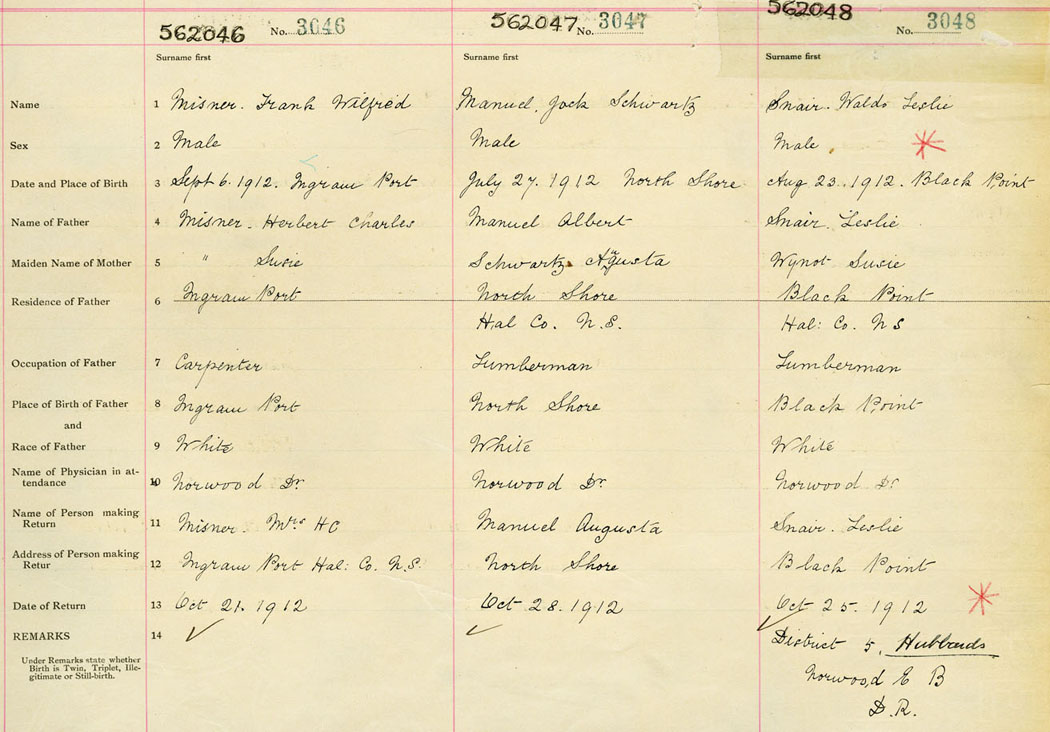 562046 No. 3046 562047 No. 3047 562048 No. 3048
Surname first Surname first Surname first
Name 1 Misner. Frank Wilfred Manuel, Jack Schwartz Snair. Waldo Leslie
Sex 2 Male Male Male
Date and Place of Birth 3 Sept 6. 1912. Ingram Port July 27. 1912 North Shore Aug 23. 1912. Black Point
Name of Father 4 Misner. Herbert Charles Manuel Albert Snair. Leslie
Maiden Name of Mother 5 " Susie Schwartz Agusta Wynot Susie
Residence of Father 6 Ingram Port North Shore Black Point
Hal Co. N.S. Hal: Co. N S
Occupation of Father 7 Carpenter Lumberman Lumberman
Place of Birth of Father 8 Ingram Port North Shore Black Point
and
Race of Father 9 White White White
Name of Physician in at-
tendance 10 Norwood Dr. Norwood Dr. Norwood Dr
Name of Person making
Return 11 Misner. Mrs H C Manuel Augusta Snair. Leslie
Address of Person making
Retur 12 Ingram Port Hal: Co. N.S. North Shore Black Point
Date of Return 13 Oct 21. 1912 Oct 28. 1912 Oct 25. 1912
REMARKS 14 District 5, Hubbards
Under Remarks state whether
Birth is Twin, Triplet, Ille-
gitimate or Still-birth.
Norwood E B
D.R.